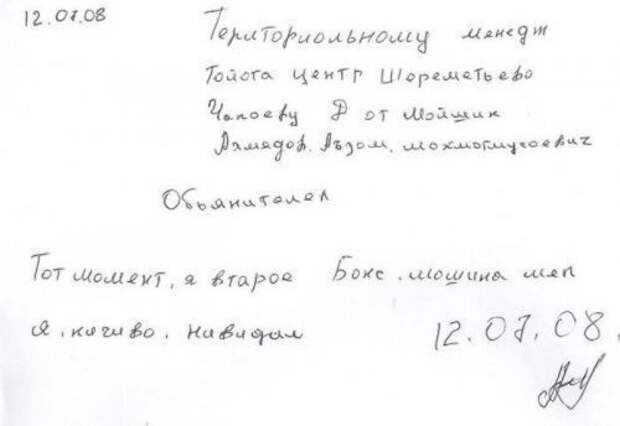 12.07.08
Териториольному менедж
Тойота центр Шореметьево
Чапоеву Д от мойщик
Ахмядов. Аъзом. мохмотмусоевич
Обьянителел
Тот момент, я второе Бокс. мошина меп
я. ничиво. нивидал 12.07.08.